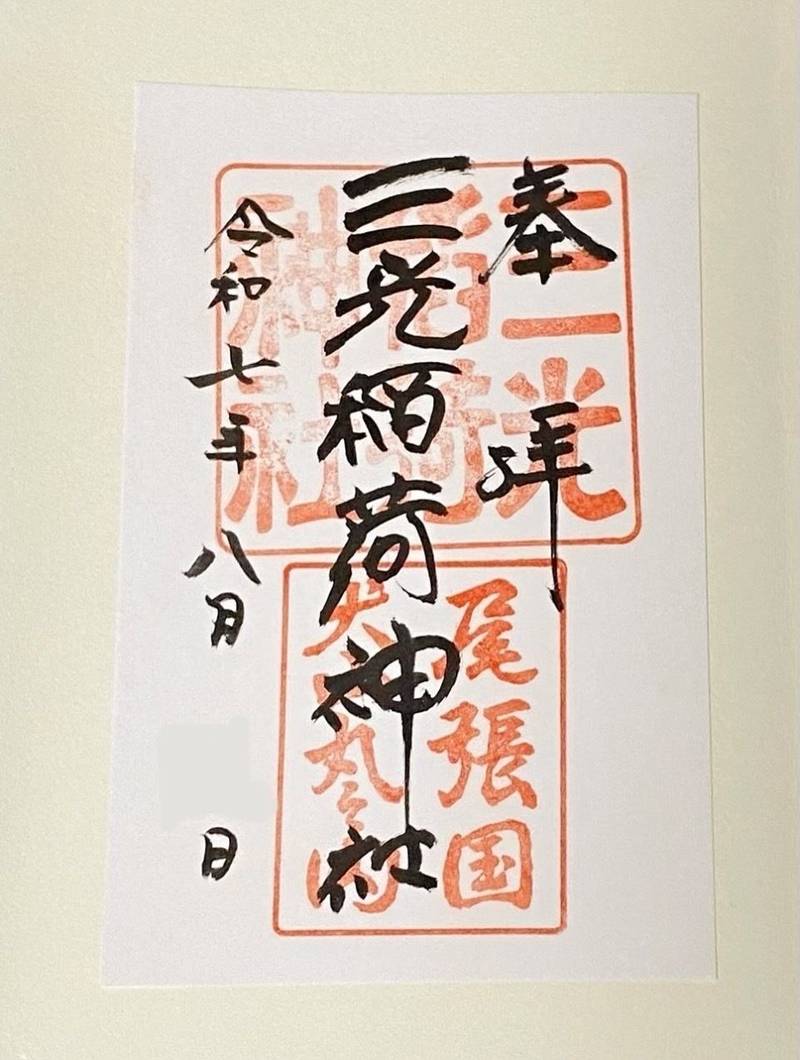 奉拝
三光稲荷神社
令和七年八月 日
三光
稲荷
神社
尾張国